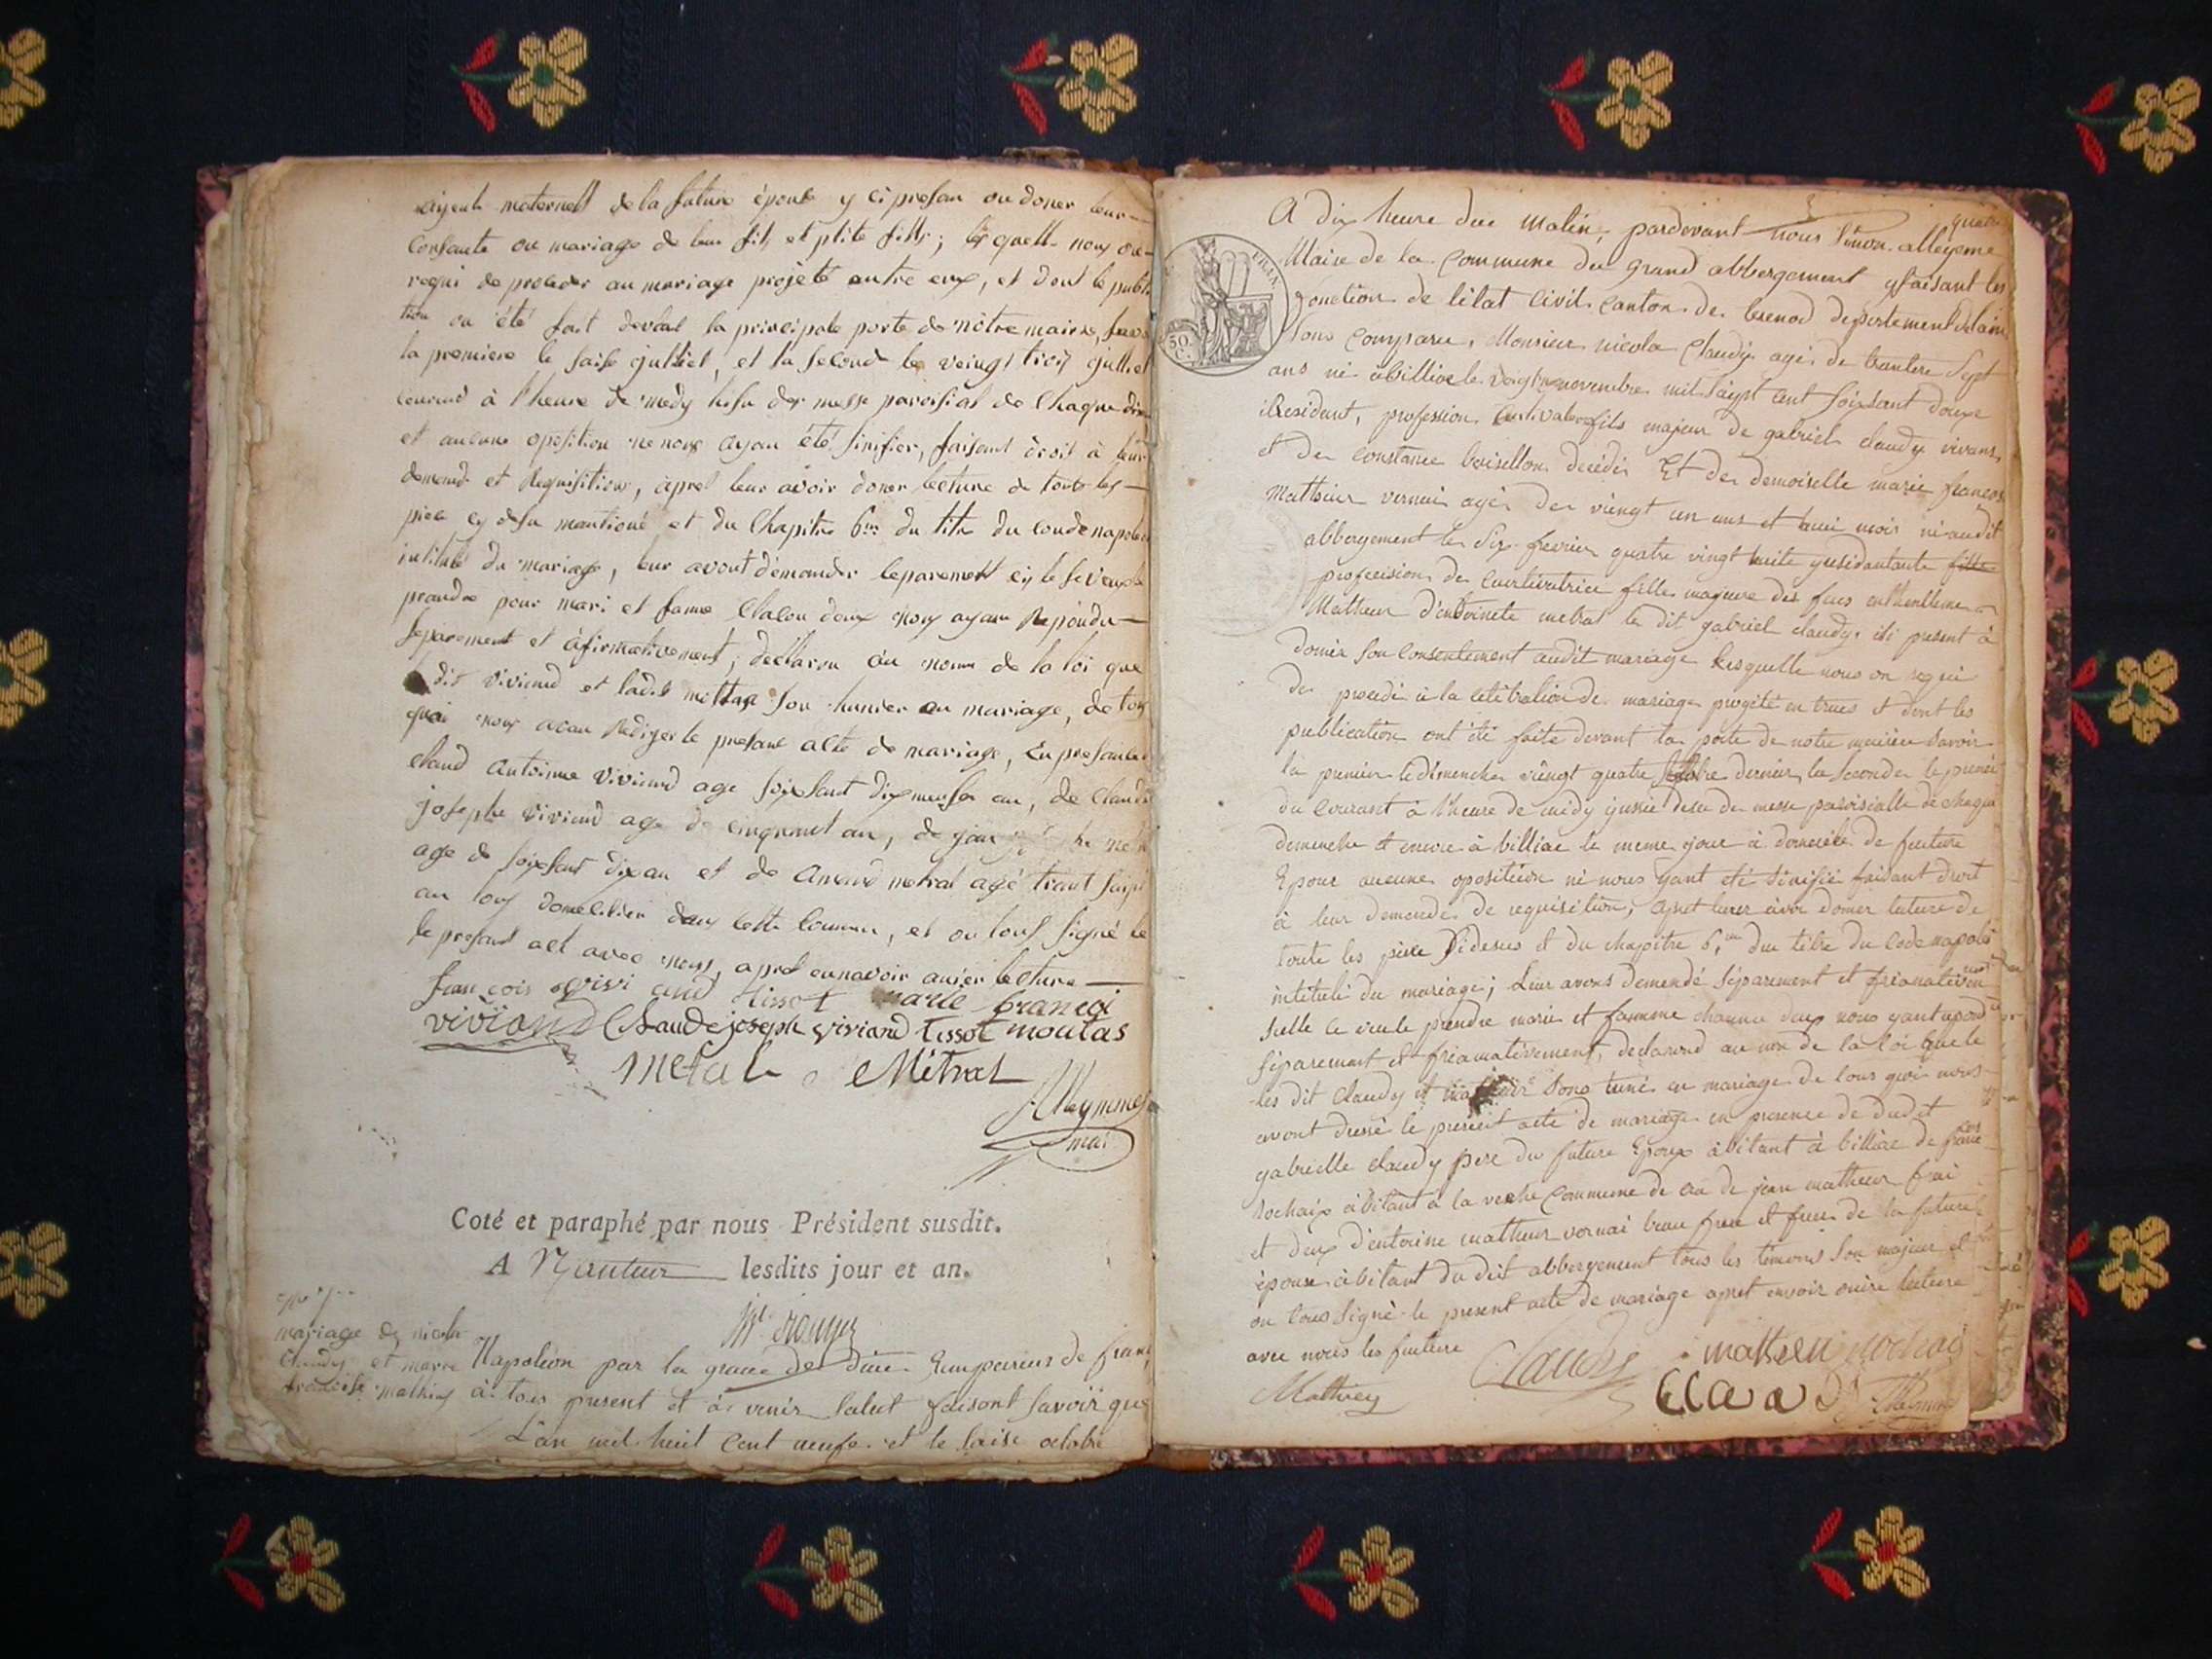 ayeuls maternell de la future épouse y ci presan on doner leur
consante au mariage de leur fils et ptite fille; les quell nous on
requi de proceder au mariage projeté entre eux, et dont le publi
tion on été fait devant la principale porte de nôtre mairie, savo
la premiere le saise jullliet, et la second le veingt trois jullet
courand à l'heure de medy hisu der messe paroisial de chaque dim
et aucune oposition ne nous ayan été sinifier, faisant droit à leur
demend et Requisition, àpret leur avoir doner lecture de toute les
piece cy desu mantioné et du Chapitre 6me du titre du coude napoleo
intitulé du mariage, leur avont démander séparement cy le se veule
prandre pour mari et fame chacon deux nous ayan Repondu
separement et àfirmativement; declaron au nom de la loi que
dit viviand et ladit son hunier au mariage, de tou
quoi nous avan Rediger le presant acte de mariage, En presance
claud Antoinne Viviand age soixsant dix neuf an, de claude
josephe viviand age de cinquant an, de jean
age de soixsant dix an et de Amand metral agé trant
an tous domecilier dans cette commun, et on tous signé le
le presant act avec nous, apret ennavoir auier lecture
francois vivi and tissot marie francoi
viviand Claude joseph viviand tissot moulas
metal Métral
Alleymme
mai
Coté et paraphé par nous Président susdit.
A Nantua lesdits jour et an.
mariage de nicola
Claudy et marie Napoléon par la grace de dieu Empereur de franc
francoise mathieu à tous present et à venir salut faisont savoir que
L'an mil huit cent neufe et le saise octobre
A dix heure due matin, pardevant nous Simon alleyeme
Maire de la Commune du grand abbergement y faisant les
fonction de l'état civil canton de brenod departement de lain
Sons comparu, Monsieur nicola claudy agé de trantere sept
ans né à billiac le veigt novembre mil saypt cent soixsant douze
i Residant, profession cultivater fils majeur de gabriel claudy vivans,
et de Constance boisellon decédé Et de demoiselle marie francois
Mathieu vernai agé de vieingt un ans et huui mois né audit
abbergement le Six fevrier quatre vingt huite y residantante fille
profecision de cuurtivatrice fille majeure des feus enthenlleme
Mathieu d'entoinete metral le dit gabriel claudy ici present à
donner son consentement audit mariage lesquelle nous on requi
de procedé à la celébration de mariage projeté en treus et dont les
publication ont été faite devant la porte de notre meuirie savoir
la premier le dimenche vieingt quatre dernier la seconde le premié
du courant à l'heure de midy yssue desu de messe paroisialle de chaque
demenche et encore à billiac le meme jour à domicile de feuture
Epoux aucune oposition ni nous yant eté sinifié faisant droit
à leur demende de requisition, apret leur àvoir donner lecture de
toute les piece Sidesus et du chapitre 6,me due titre du code napoleo
intitulé du mariage; Leur avons demendé séparement et
Sielle ce veule prendre marie et famme chaunn deux nous yant repond
séparement et friamativement, declarond au non de la loi que le
les dit claudy et mathieu sons tunés en mariage de tous quoi nous
avont dressé le present acte de mariage en presence de dudit
gabrielle claudy pere du future Epoux àbitant à billiac de francois
Rochaix àbitant à la veche commune de de jean matheur frai
et deux d'entoine matheur vernai beau frere et frere de la future
épouse àbitant du dit abbergement tous les témoins son majeur et
on tous signé le present acte de mariage apret envoir ouire lecture
avec nous les feuture Claudy mathieu rochaix
Mathieu claudy